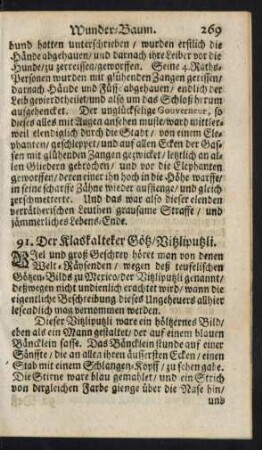 Wunder-Baum. 269
bund hatten unterschrieben / wurden erstlich die
Hände abgehauen / und darnach ihre Leiber vor die
Hunde / zu zerreissen / geworffen. Seine 4. Raths-
Personen wurden mit glühenden Zangen gerissen /
darnach Hände und Füsse abgehauen / endlich der
Leib geviertheilet / und also um das Schloß herum
aufgehenckt. Der unglückselige Gouverneur, so
dieses alles mit Augen ansehen muste / ward mitler-
weil elendiglich durch die Stadt / von einem Ele-
phanten / geschleppet / und auf allen Ecken der Gas-
sen mit glühenden Zangen gezwicket / letzlich an al-
len Gliedern gebrochen / und vor die Elephanten
geworffen / deren einer ihn hoch in die Höhe warffe /
an seine scharffe Zähne wieder auffienge / und gleich
zerschmetterte. Und das war also dieser elenden
verrätherischen Leuthen grausame Straffe / und
jämmerliches Lebens-Ende.
91. Der Klaskalteker Götz / Vitzliputzli.
Viel und groß Geschrey höret man von denen
Welt-Räysenden / wegen deß teufelischen
Götzen-Bilds zu Mexico / der Vitzliputzli genannt /
deßwegen nicht undienlich erachtet wird / wann die
eigentliche Beschreibung dieses Ungeheuers allhier
lesendlich mag vernommen werden.
Dieser Vitzliputzli ware ein höltzernes Bild /
eben als ein Mann gestaltet / der auf einem blauen
Bäncklein sasse. Das Bäncklein stunde auf einer
Sänffte / die an allen ihren äussersten Ecken / einen
Stab mit einem Schlangen-Kopff / zu sehen gabe.
Die Stirne ware blau gemahlet / und ein Strich
von dergleichen Farbe gienge über die Nase hin /
und